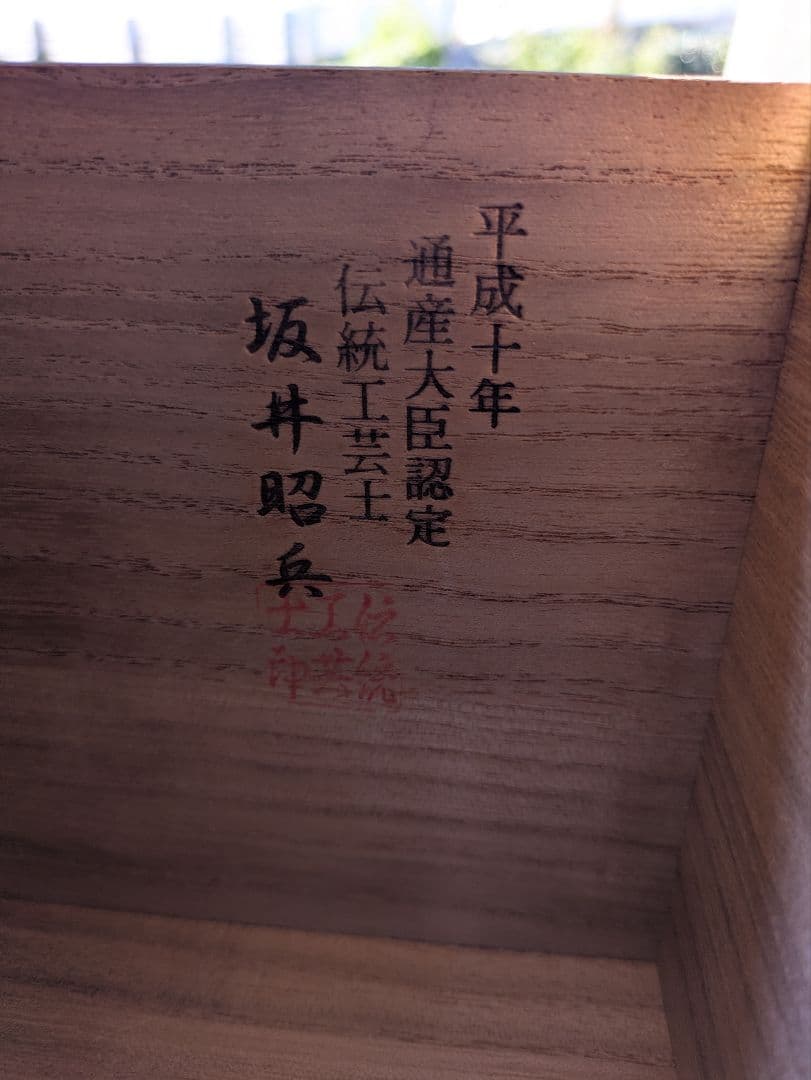 平成十年
通産大臣認定
伝統工芸士
坂井昭兵
伝統
工芸
士印